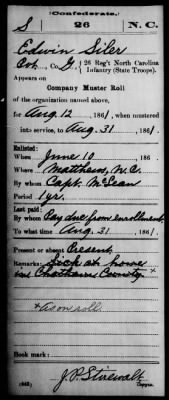 (Confederate.)
S 26 N. C.
Edwin Siler
Pvt., Co. G, 26 Reg't North Carolina
Infantry (State Troops).
Appears on
Company Muster Roll
of the organization named above,
for Aug. 12, 1861, when mustered
into service, to Aug. 31, 1861.
Enlisted:
When June 10, 186 .
Where Matthews, N.C.
By whom Capt. McLean
Period 1 yr.
Last paid:
By whom Pay due from enrollment
To what time Aug. 31, 1861.
Present or absent Present
Remarks: Sick at home
in Chatham County x
x As on roll
Book mark:
(642) J. P. Stirewalt
Copyist.